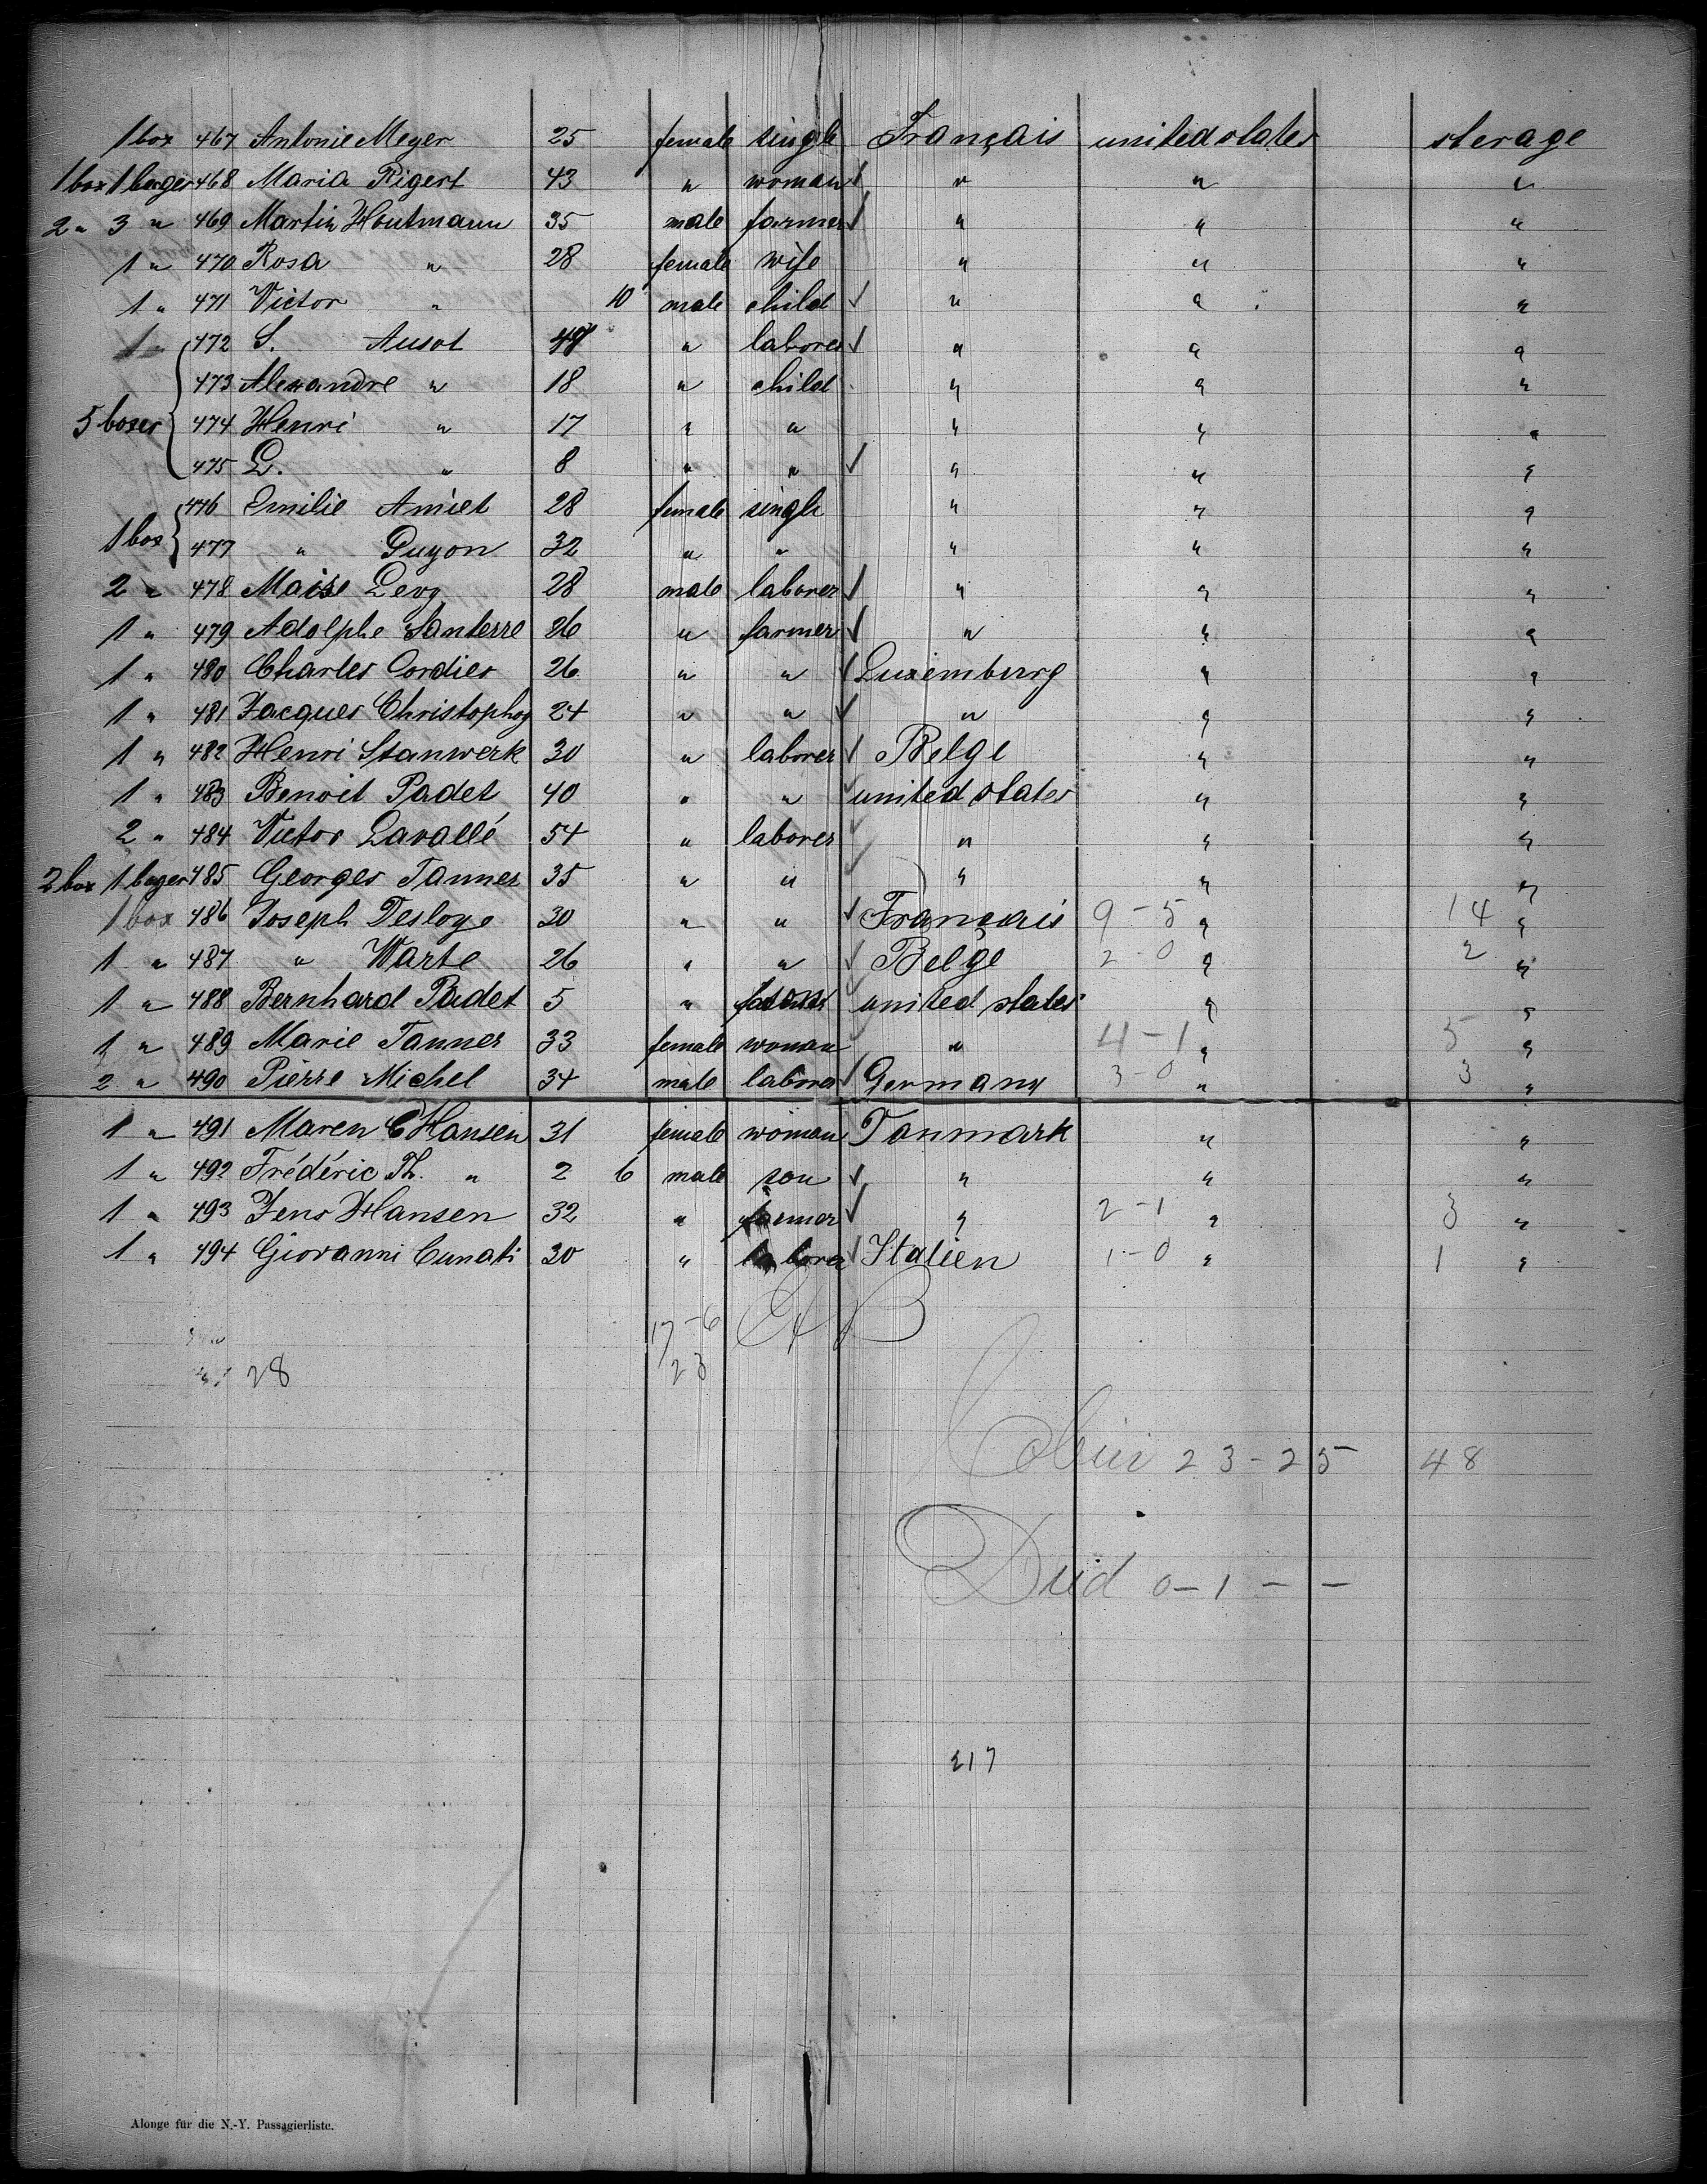 1 box 467 Antonie Meyer 25 female single Français united states sterage
1 box 1 bager 468 Maria Rigert 43 " woman " " "
2 " 3 " 469 Martin Houtmann 35 male farmer " " "
1 " 470 Rosa " 28 female wife " " "
1 " 471 Victor " 10 male child " " "
1 " 472 S. Ausot " laborer " " "
473 Alexandre " 18 " child " " "
5 boxes 474 Henri " 17 " " " " "
475 L. " 8 " " " " "
476 Emilie Amiet 28 female single " " "
1 box 477 " Guyon 32 " " " " "
2 " 478 Maise Levy 28 male laborer " " "
1 " 479 Adolphe Santerre 26 " farmer " " "
1 " 480 Charles Cordier 26 " " Luxemburg " "
1 " 481 Jacques Christophoy 24 " " " " "
1 " 482 Henri Stanwerk 30 " laborer Belge " "
1 " 483 Benoit Padet 40 " " united states " "
2 " 484 Victor Lavallé 54 " laborer " " "
2 box 1 bager 485 Georges Tanner 35 " " " " "
1 box 486 Joseph Desloye 30 " " Français 9-5 " 14 "
1 " 487 " Warte 26 " " Belge 2-0 " 2 "
1 " 488 Bernhard Padet 5 " united states " "
1 " 489 Marie Tanner 33 female woman " 4-1 " 5 "
2 " 490 Pierre Michel 34 male laborer Germany 3-0 " 3 "
1 " 491 Maren C Hansen 31 female woman Tanmark " "
1 " 492 Frédéric Th. " 2 6 male son " " "
1 " 493 Jens Hansen 32 " farmer " 2-1 " 3 "
1 " 494 Giovanni Cunati 30 " laborer Italien 1-0 " 1 "
17-6
28 23
23-25 48
Died 0-1 - -
217
Alonge für die N.-Y. Passagierliste.